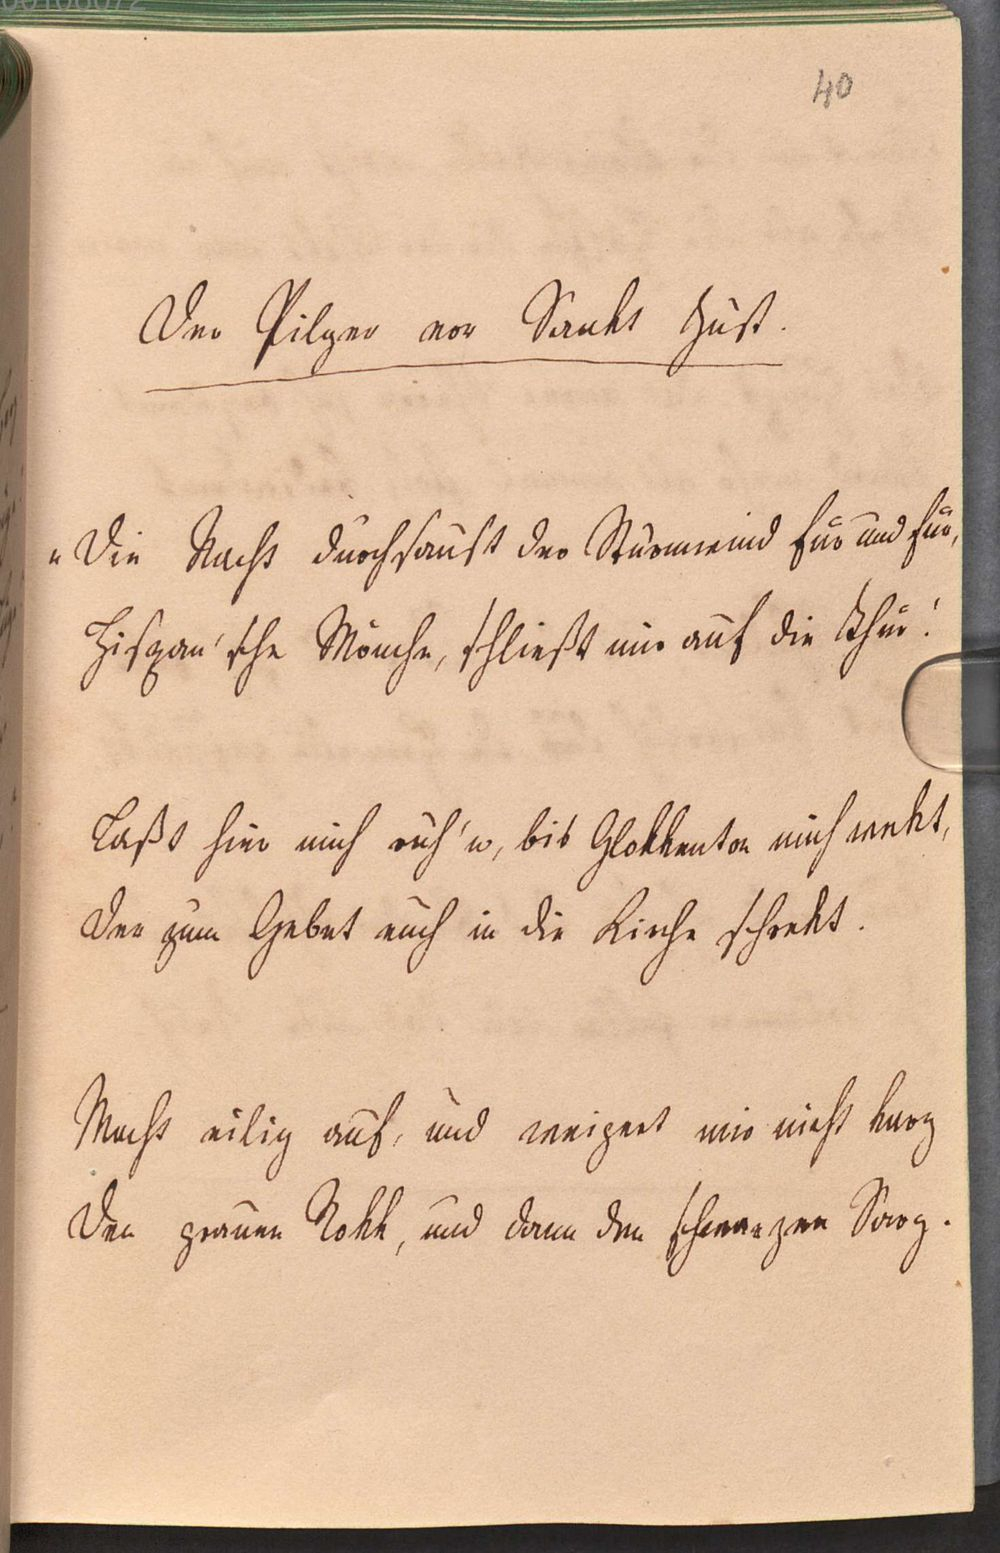 40
Der Pilger vor Sankt Just.
„Die Nacht durchsaust der Sturmwind für und für,
Hispan'sche Mönche, schließt mir auf die Thür!
Laßt hier mich ruh'n, bis Glokkenton mich wekt,
Der zum Gebet euch in die Kirche schrekt.
Macht eilig auf, und weigert mir nicht karg
Den grauen Rokk, und dann den schwarzen Sarg.